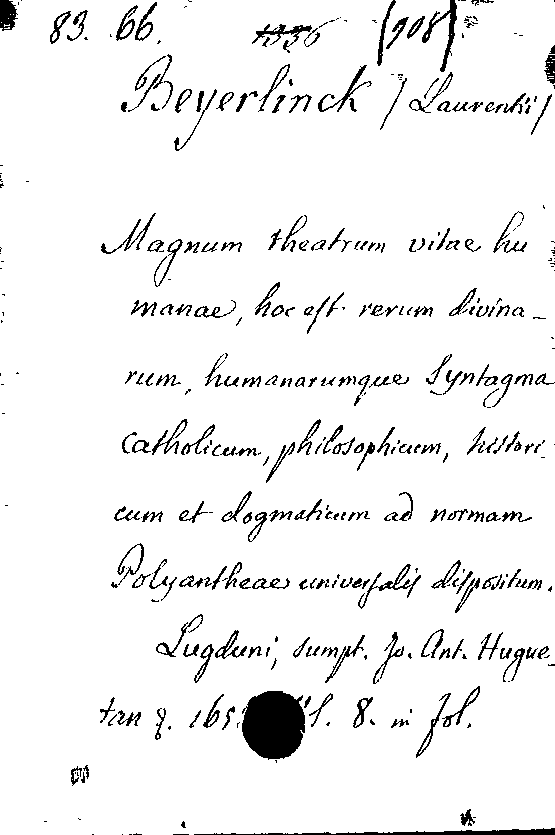 83. 66. 1336 (908)
Beyerlinck / Laurentii /
Magnum theatrum vitae hu
manae, hoc est rerum divina-
rum, humanarumque Syntagma
Catholicum, philosophicum, histori-
cum et dogmaticum ad normam
Polyantheae universalis dispositum.
Lugduni, sumpt. Jo. Ant. Hugue-
tan 8. in fol.